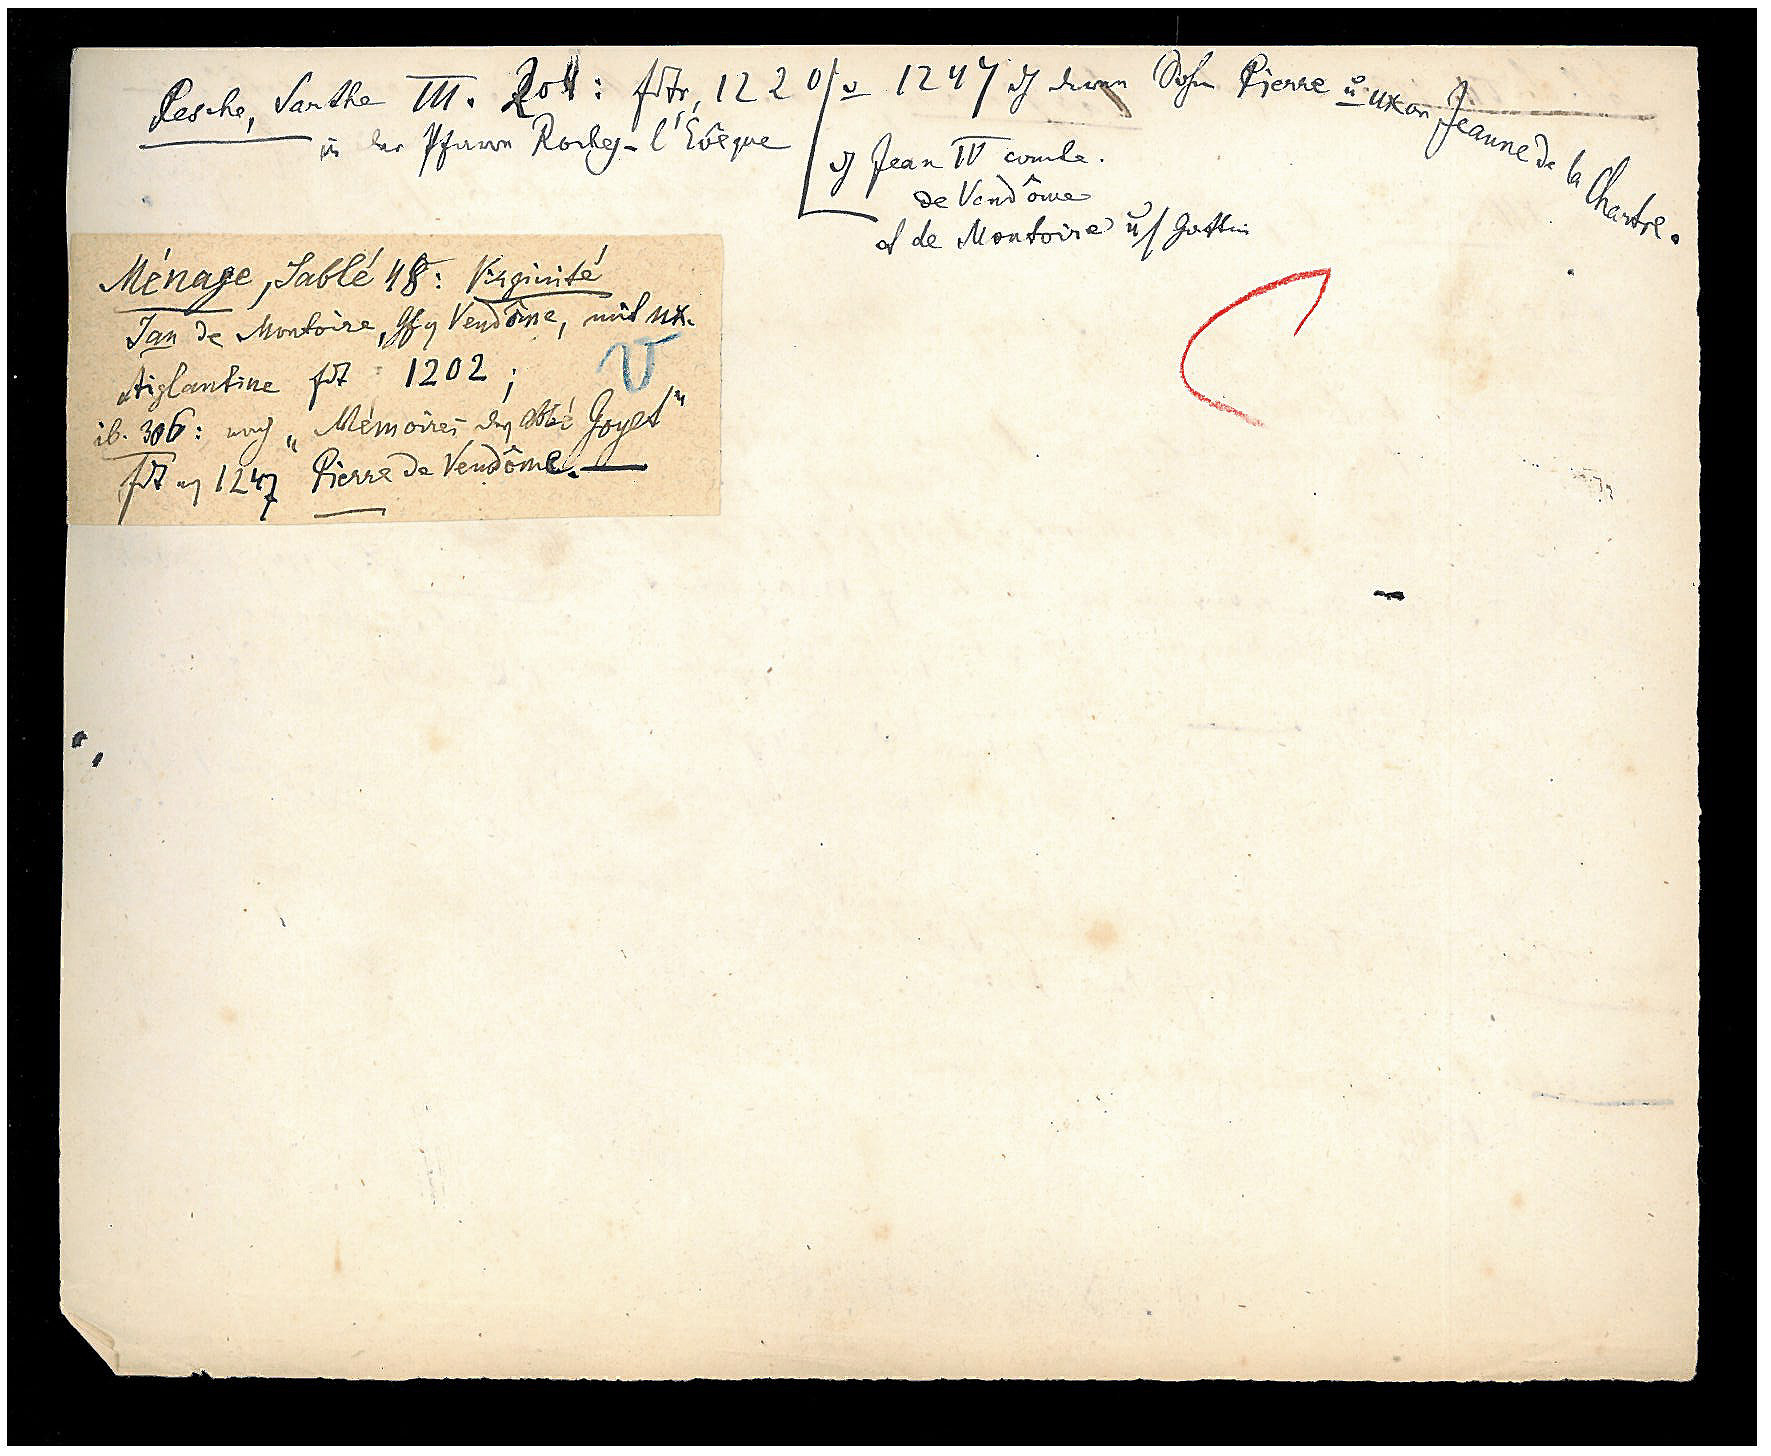 Pesche, Sarthe III. 204: fdtr, 1220/ v 1247 dch deren Sohn Pierre u uxor Jeanne de la Chartre.
in der Pfarren Roches-l'Évêque
dch Jean IV comte
de Vendôme
et de Montoire u/ Gattin
Ménage, Sablé 48: Virginité
Jan de Montoire, Gf v Vendôme, mit ux.
Aiglantine fdt 1202;
ib. 306: nach "Mémoires des abbé Goyet"
fdt 1247 Pierre de Vendôme.
V